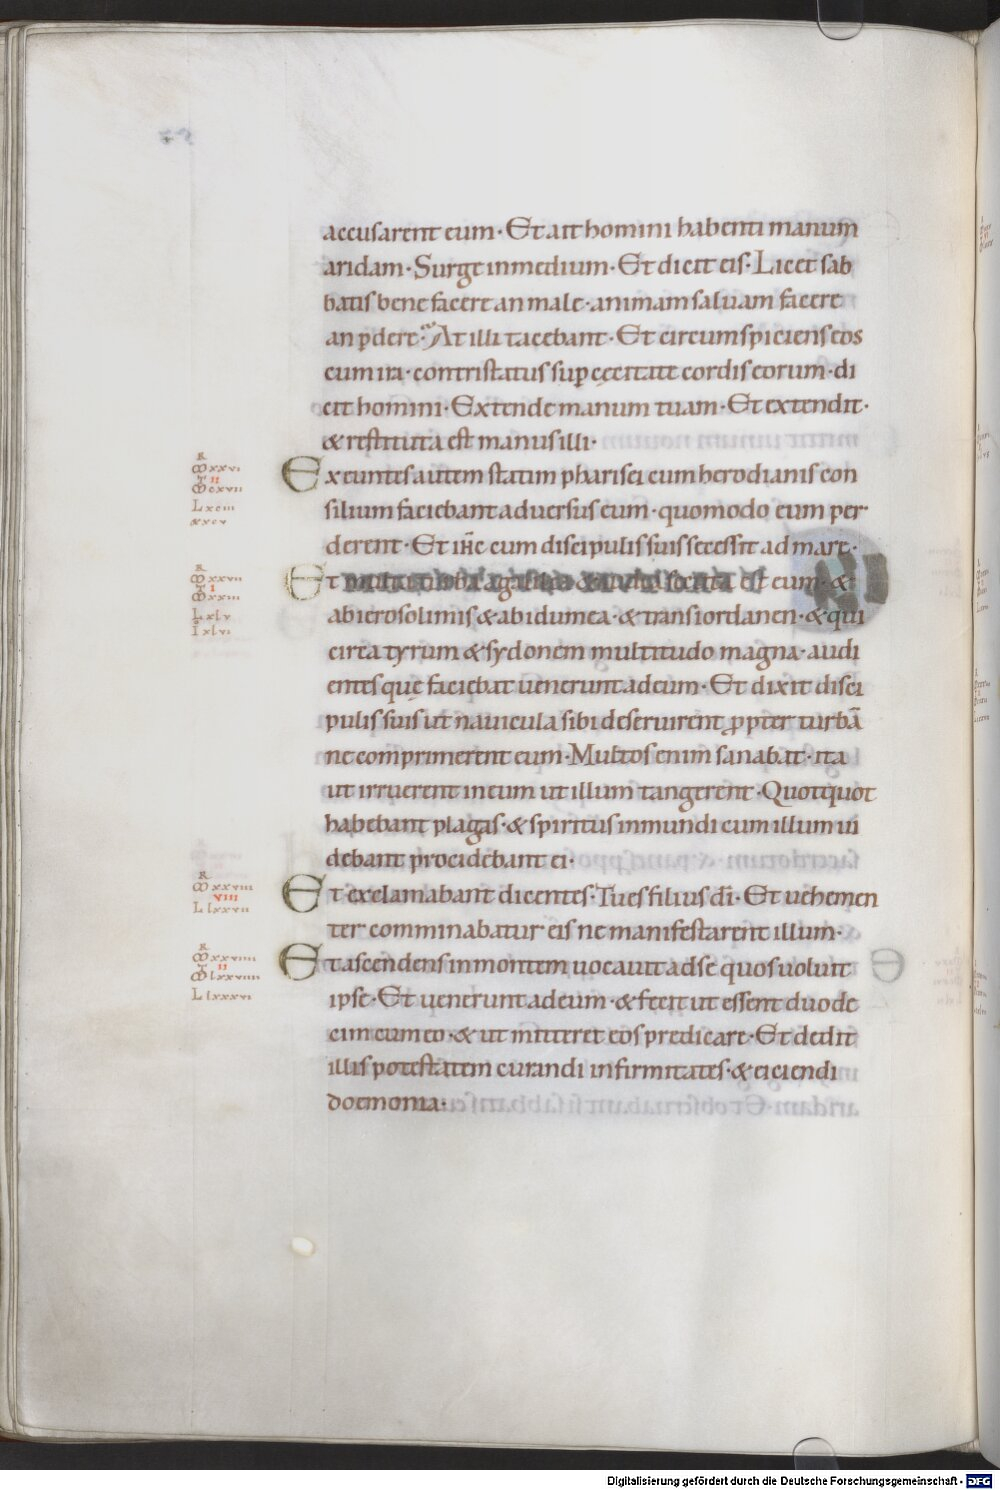 accusarent eum · Et ait homini habenti manum
aridam · Surge in medium · Et dicit eis · Licet sab
batis bene facere an male · animam saluam facere
an ꝑdere · At illi tacebant · Et circumspiciens eos
cum ira · contristatus suꝑ cęcitate cordis eorum · di
cit homini · Extende manum tuam · Et extendit ·
& restituta est manus illi ·
R
M xxvi
T II
M cxvii
L xciii
& xcv
Exeuntes autem statim pharisei cum herodianis con
silium faciebant aduersus eum · quomodo eum per
derent · Et ihc̄ cum discipulis suis secessit ad mare ·
R
M xxvii
T I
M xxiii
L xlv
I xlvi
Et multa turba a galilea & iudea secuta est eum · &
ab ierosolimis & ab idumea · & transiordanen · & qui
circa tyrum & sydonem multitudo magna · audi
entes quę faciebat uenerunt ad eum · Et dixit disci
pulis suis ut nauicula sibi deseruirent ꝓpter turbā
ne comprimerent eum · Multos enim sanabat · ita
ut irruerent in eum ut illum tangerent · Quotquot
habebant plagas · & spiritus inmundi cum illum ui
debant procidebant ei ·
R
M xxviii
VIII
L lxxvii
Et exclamabant dicentes · Tu es filius dī · Et uehemen
ter comminabatur eis ne manifestarent illum ·
R
M xxviiii
T II
M lxxviiii
L lxxxvi
Et ascendens in montem uocauit ad se quos uoluit
ipse · Et uenerunt ad eum · & fecit ut essent duode
cim cum eo · & ut mitteret eos predicare · Et dedit
illis potestatem curandi infirmitates · & eiciendi
doemonia ·
Digitalisierung gefördert durch die Deutsche Forschungsgemeinschaft - DFG